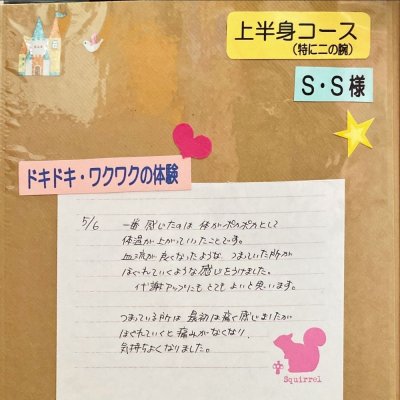 上半身コース
(特に二の腕)
S・S様
ドキドキ・ワクワクの体験
5/6 一番感じたのは体がポカポカとして
体温が上がっていったことです。
血流が良くなったような、つまっていた所が
ほぐれていくような感じをうけました。
代謝アップにもとてもよいと思います。
つまっている所は最初は痛く感じましたが
ほぐれていくと痛みがなくなり、
気持ちよくなりました。
Squirrel